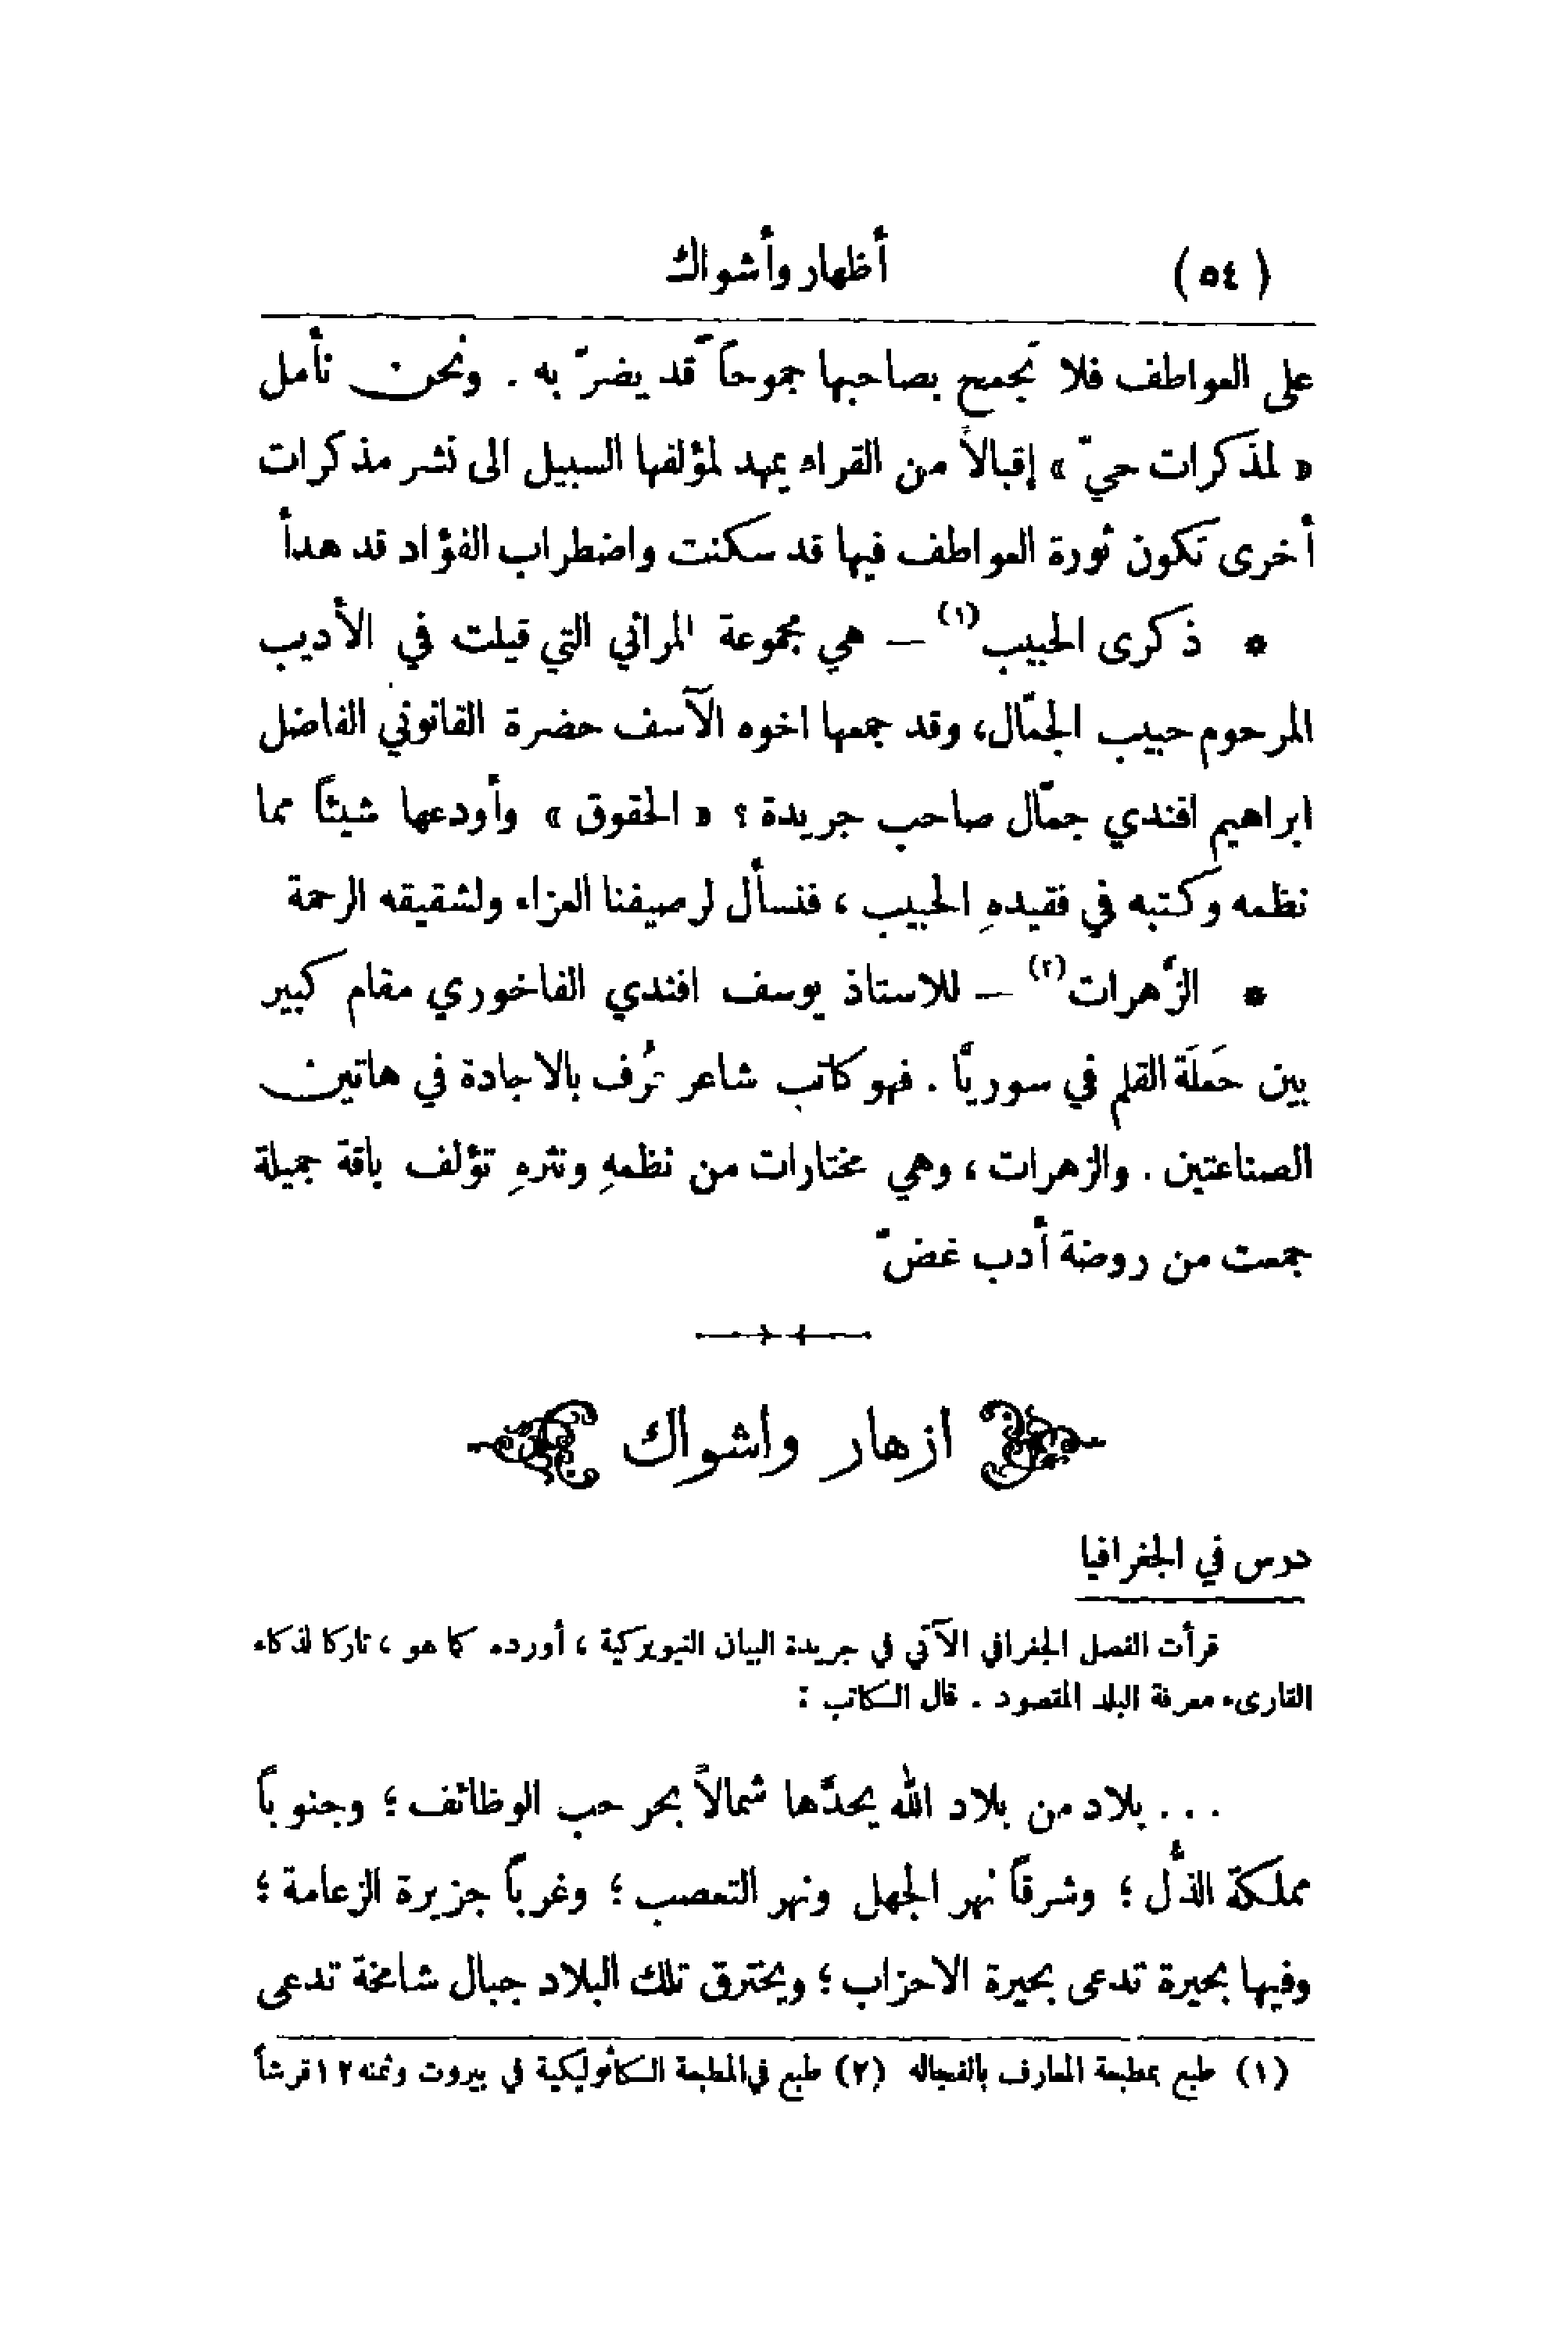 (٥٤) أظهار وأشواك
على العواطف فلا تجمح بصاحبها جموحاً قد يضرّ به . ونحن نأمل
« لمذكرات حيّ » إقبالاً من القراء يمهد لمؤلفها السبيل الى نشر مذكرات
أخرى تكون ثورة العواطف فيها قد سكنت واضطراب الفؤاد قد هدأ
* ذكرى الحبيب(١) – هي مجموعة المراثي التي قيلت في الأديب
المرحوم حبيب الجمّال، وقد جمعها اخوه الآسف حضرة القانوني الفاضل
ابراهيم افندي جمّال صاحب جريدة ؟ « الحقوق » وأودعها شيئاً مما
نظمه وكتبه في فقيدهِ الحبيب ، فنسأل لرصيفنا العزاء ولشقيقه الرحمة
* الزَّهرات(٢) – للاستاذ يوسف افندي الفاخوري مقام كبير
بين حَمَلَة القلم في سوريَّا . فهو كاتب شاعر عُرف بالاجادة في هاتين
الصناعتين . والزهرات ، وهي مختارات من نظمهِ ونثرهِ تؤلف باقة جميلة
جمعت من روضة أدب غضّ
ازهار واشواك
درس في الجغرافيا
قرأت الفصل الجغرافي الآتي في جريدة البيان النيويركية ، أورده كما هو ، تاركا لذكاء
القارىء معرفة البلد المقصود . قال الكاتب :
... بلاد من بلاد الله يحدَّها شمالاً بحر حب الوظائف ؛ وجنوباً
مملكة الذُّل ؛ وشرقاً نهر الجهل ونهر التعصب ؛ وغرباً جزيرة الزعامة ؛
وفيها بحيرة تدعى بحيرة الاحزاب ؛ ويخترق تلك البلاد جبال شامخة تدعى
(١) طبع بمطبعة المعارف بالفجاله (٢) طبع في المطبعة الكاثوليكية في بيروت وثمنه ١٢ قرشاً